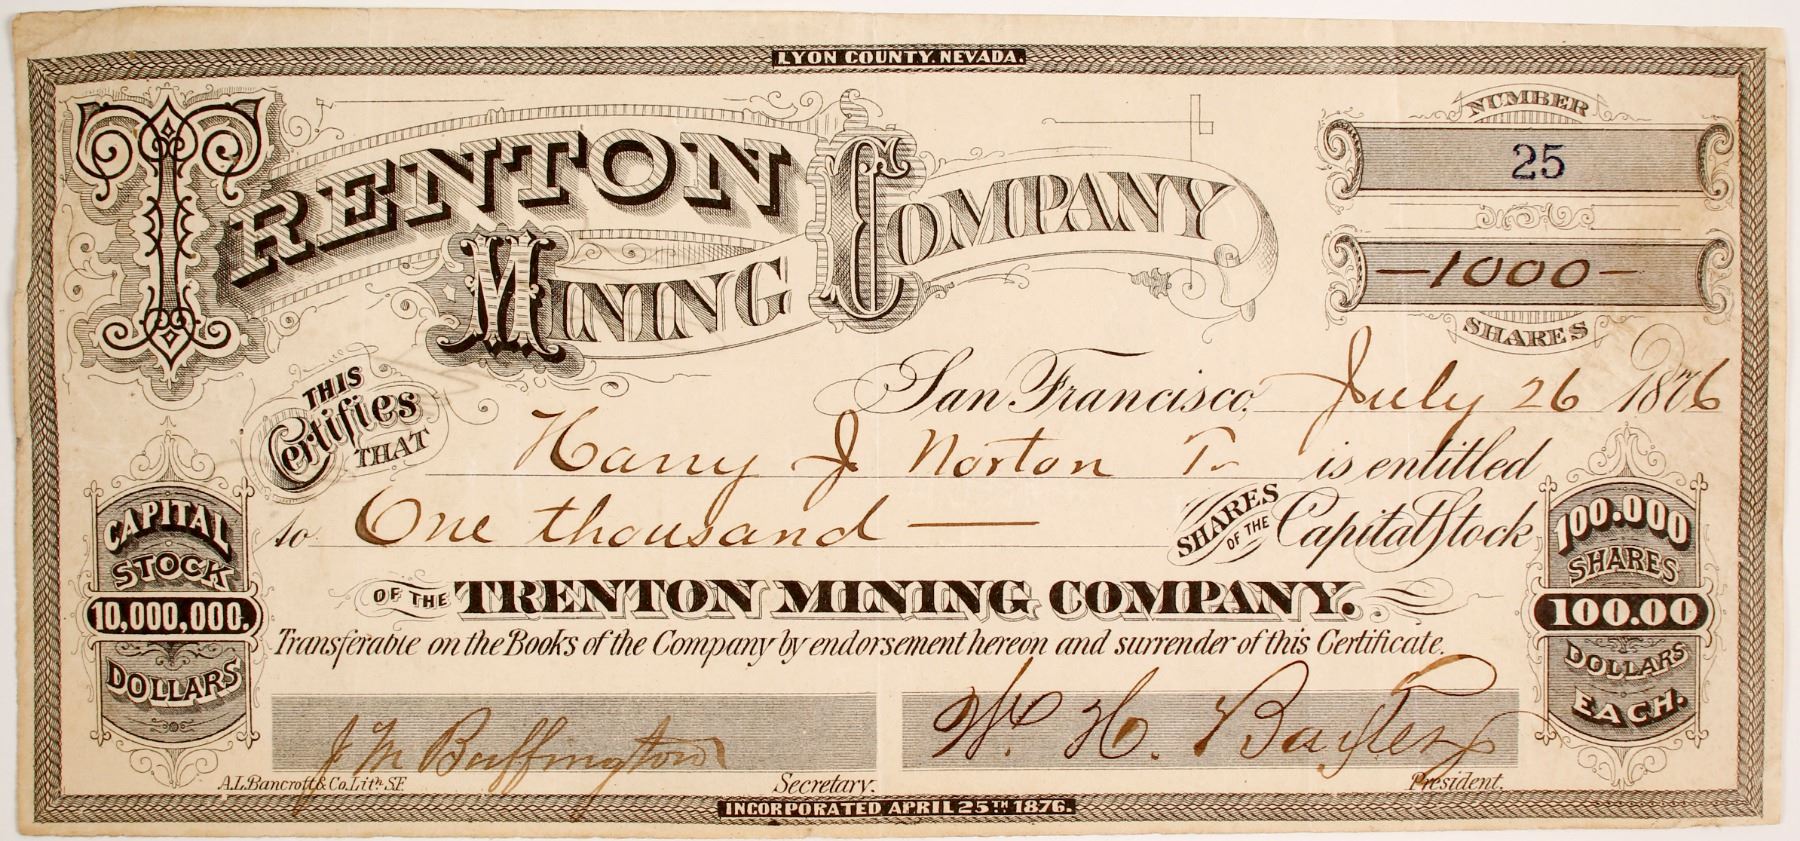 LYON COUNTY, NEVADA.
TRENTON
MINING COMPANY
NUMBER
25
—1000—
SHARES
San Francisco, July 26 1876
THIS
Certifies
THAT
Harry J Norton Tr is entitled
to One thousand — SHARES OF THE Capital Stock
OF THE TRENTON MINING COMPANY.
Transferable on the Books of the Company by endorsement hereon and surrender of this Certificate.
CAPITAL
STOCK
10,000,000.
DOLLARS
100.000
SHARES
100.00
DOLLARS
EACH.
J M Buffington
Secretary.
Wm H.
President.
A.L. Bancroft & Co. Lith. S.F.
INCORPORATED APRIL 25TH 1876.